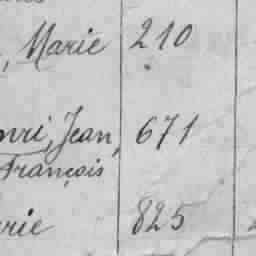 , Marie 210
Jean, 671
François
825